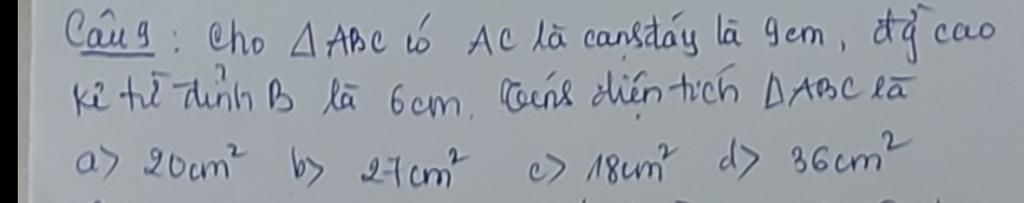 Câu 9: Cho △ABC có AC là cạnh đáy là 9cm, độ cao
kẻ từ đỉnh B là 6cm. diện tích △ABC là
a> 20cm² b> 27cm² c> 18cm² d> 36cm²